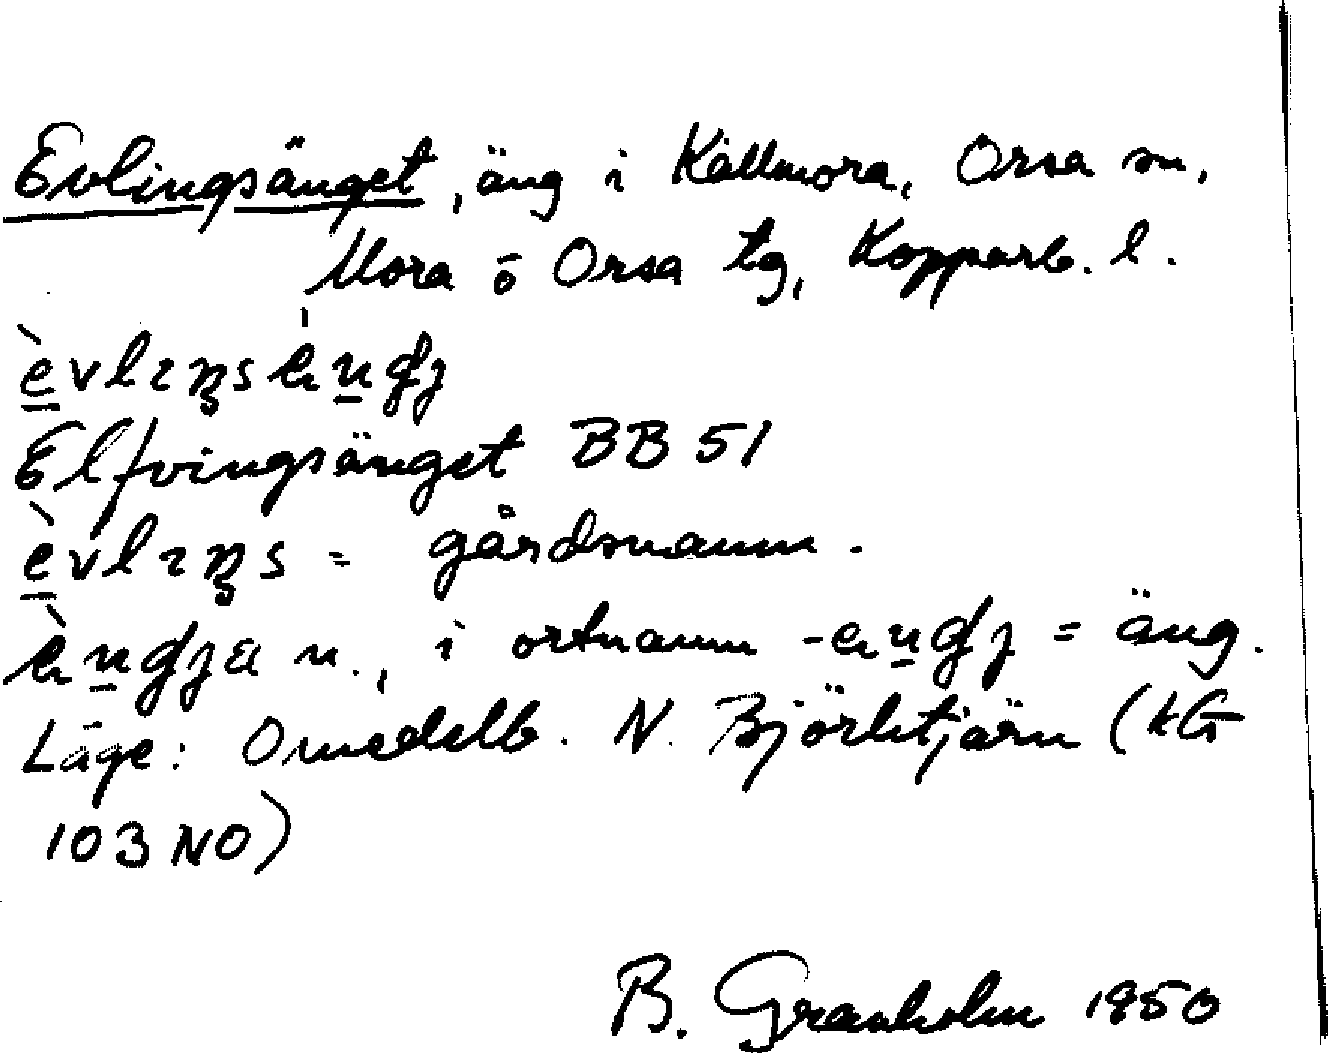 Evlingsänget, äng i Källmora, Orsa sn,
Mora o Orsa tg, Kopparb. l.
Elfvingsänget BB 51
= gårdsnamn.
n., i ortnamn = äng.
Läge: Omedelb. N. Björktjärn (kG
103 NO)
B. Granholm 1950